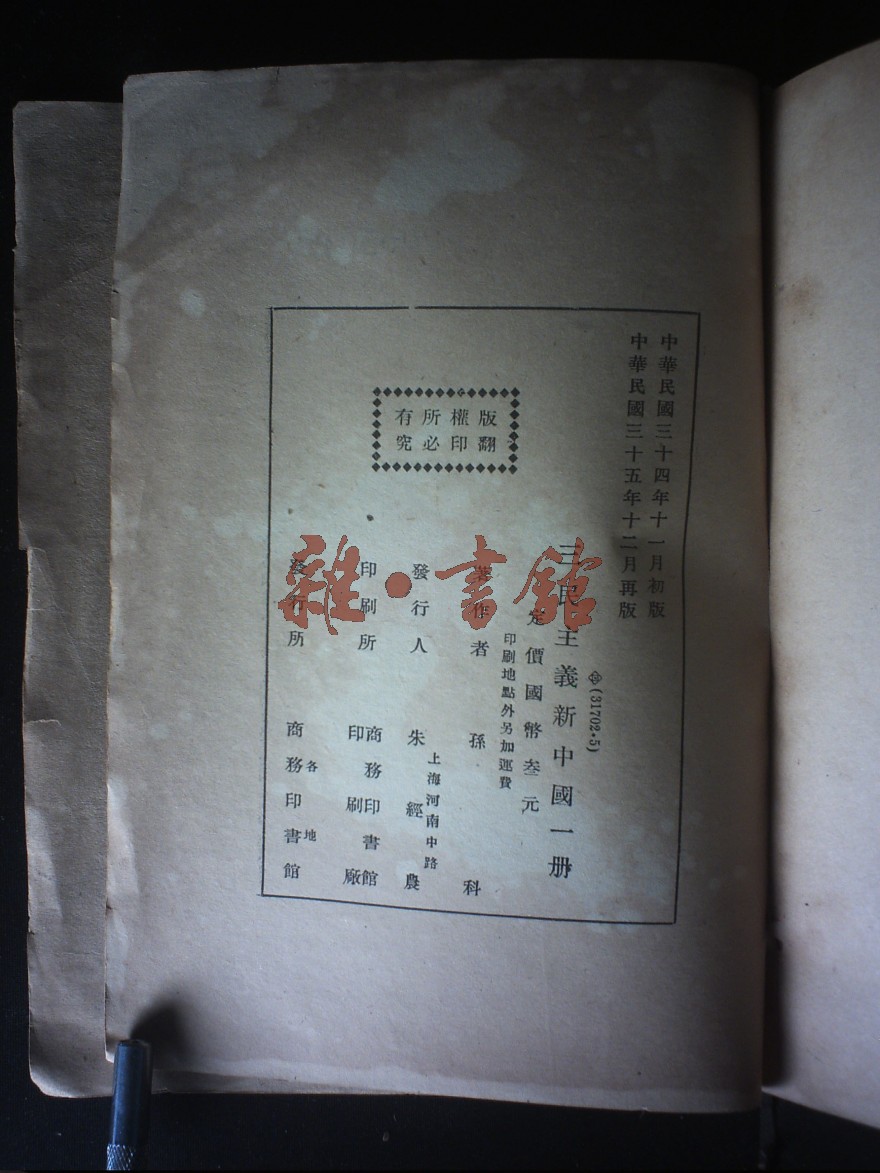 中華民國三十四年十一月初版
中華民國三十五年十二月再版
(31702·5)
三民主義新中國一册
定價國幣叁元
印刷地點外另加運費
著作者 孫科
上海河南中路
發行人 朱經農
印刷所 商務印書館印刷廠
發行所 各地商務印書館
版權所有
翻印必究
雜·書館